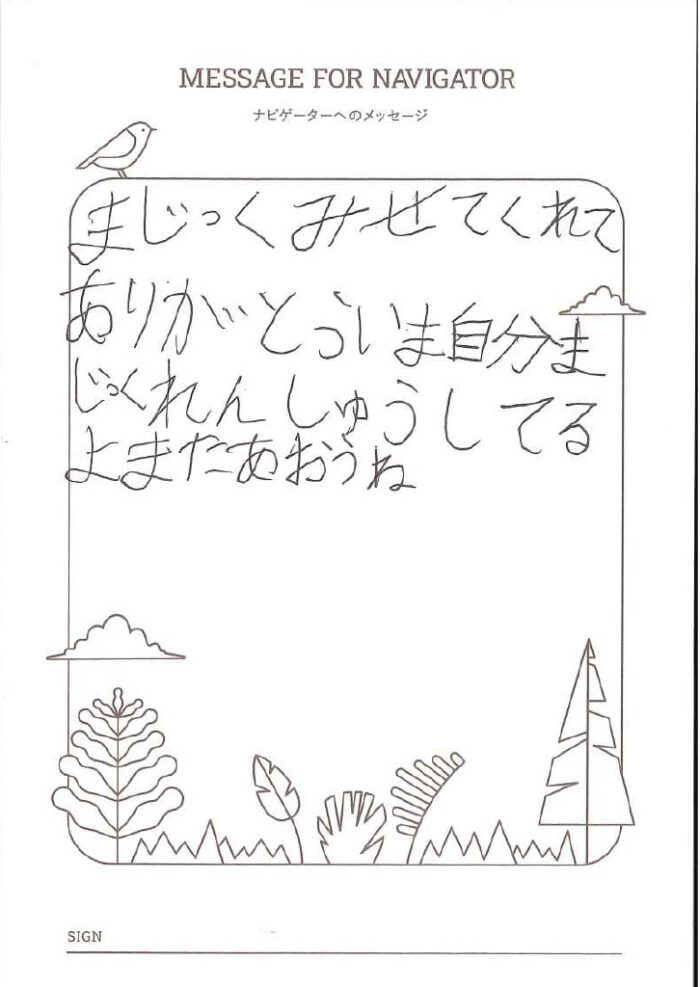 MESSAGE FOR NAVIGATOR
ナビゲーターへのメッセージ
まじっくみせてくれて
ありがとういま自分ま
じっくれんしゅうしてる
よまたあおうね
SIGN